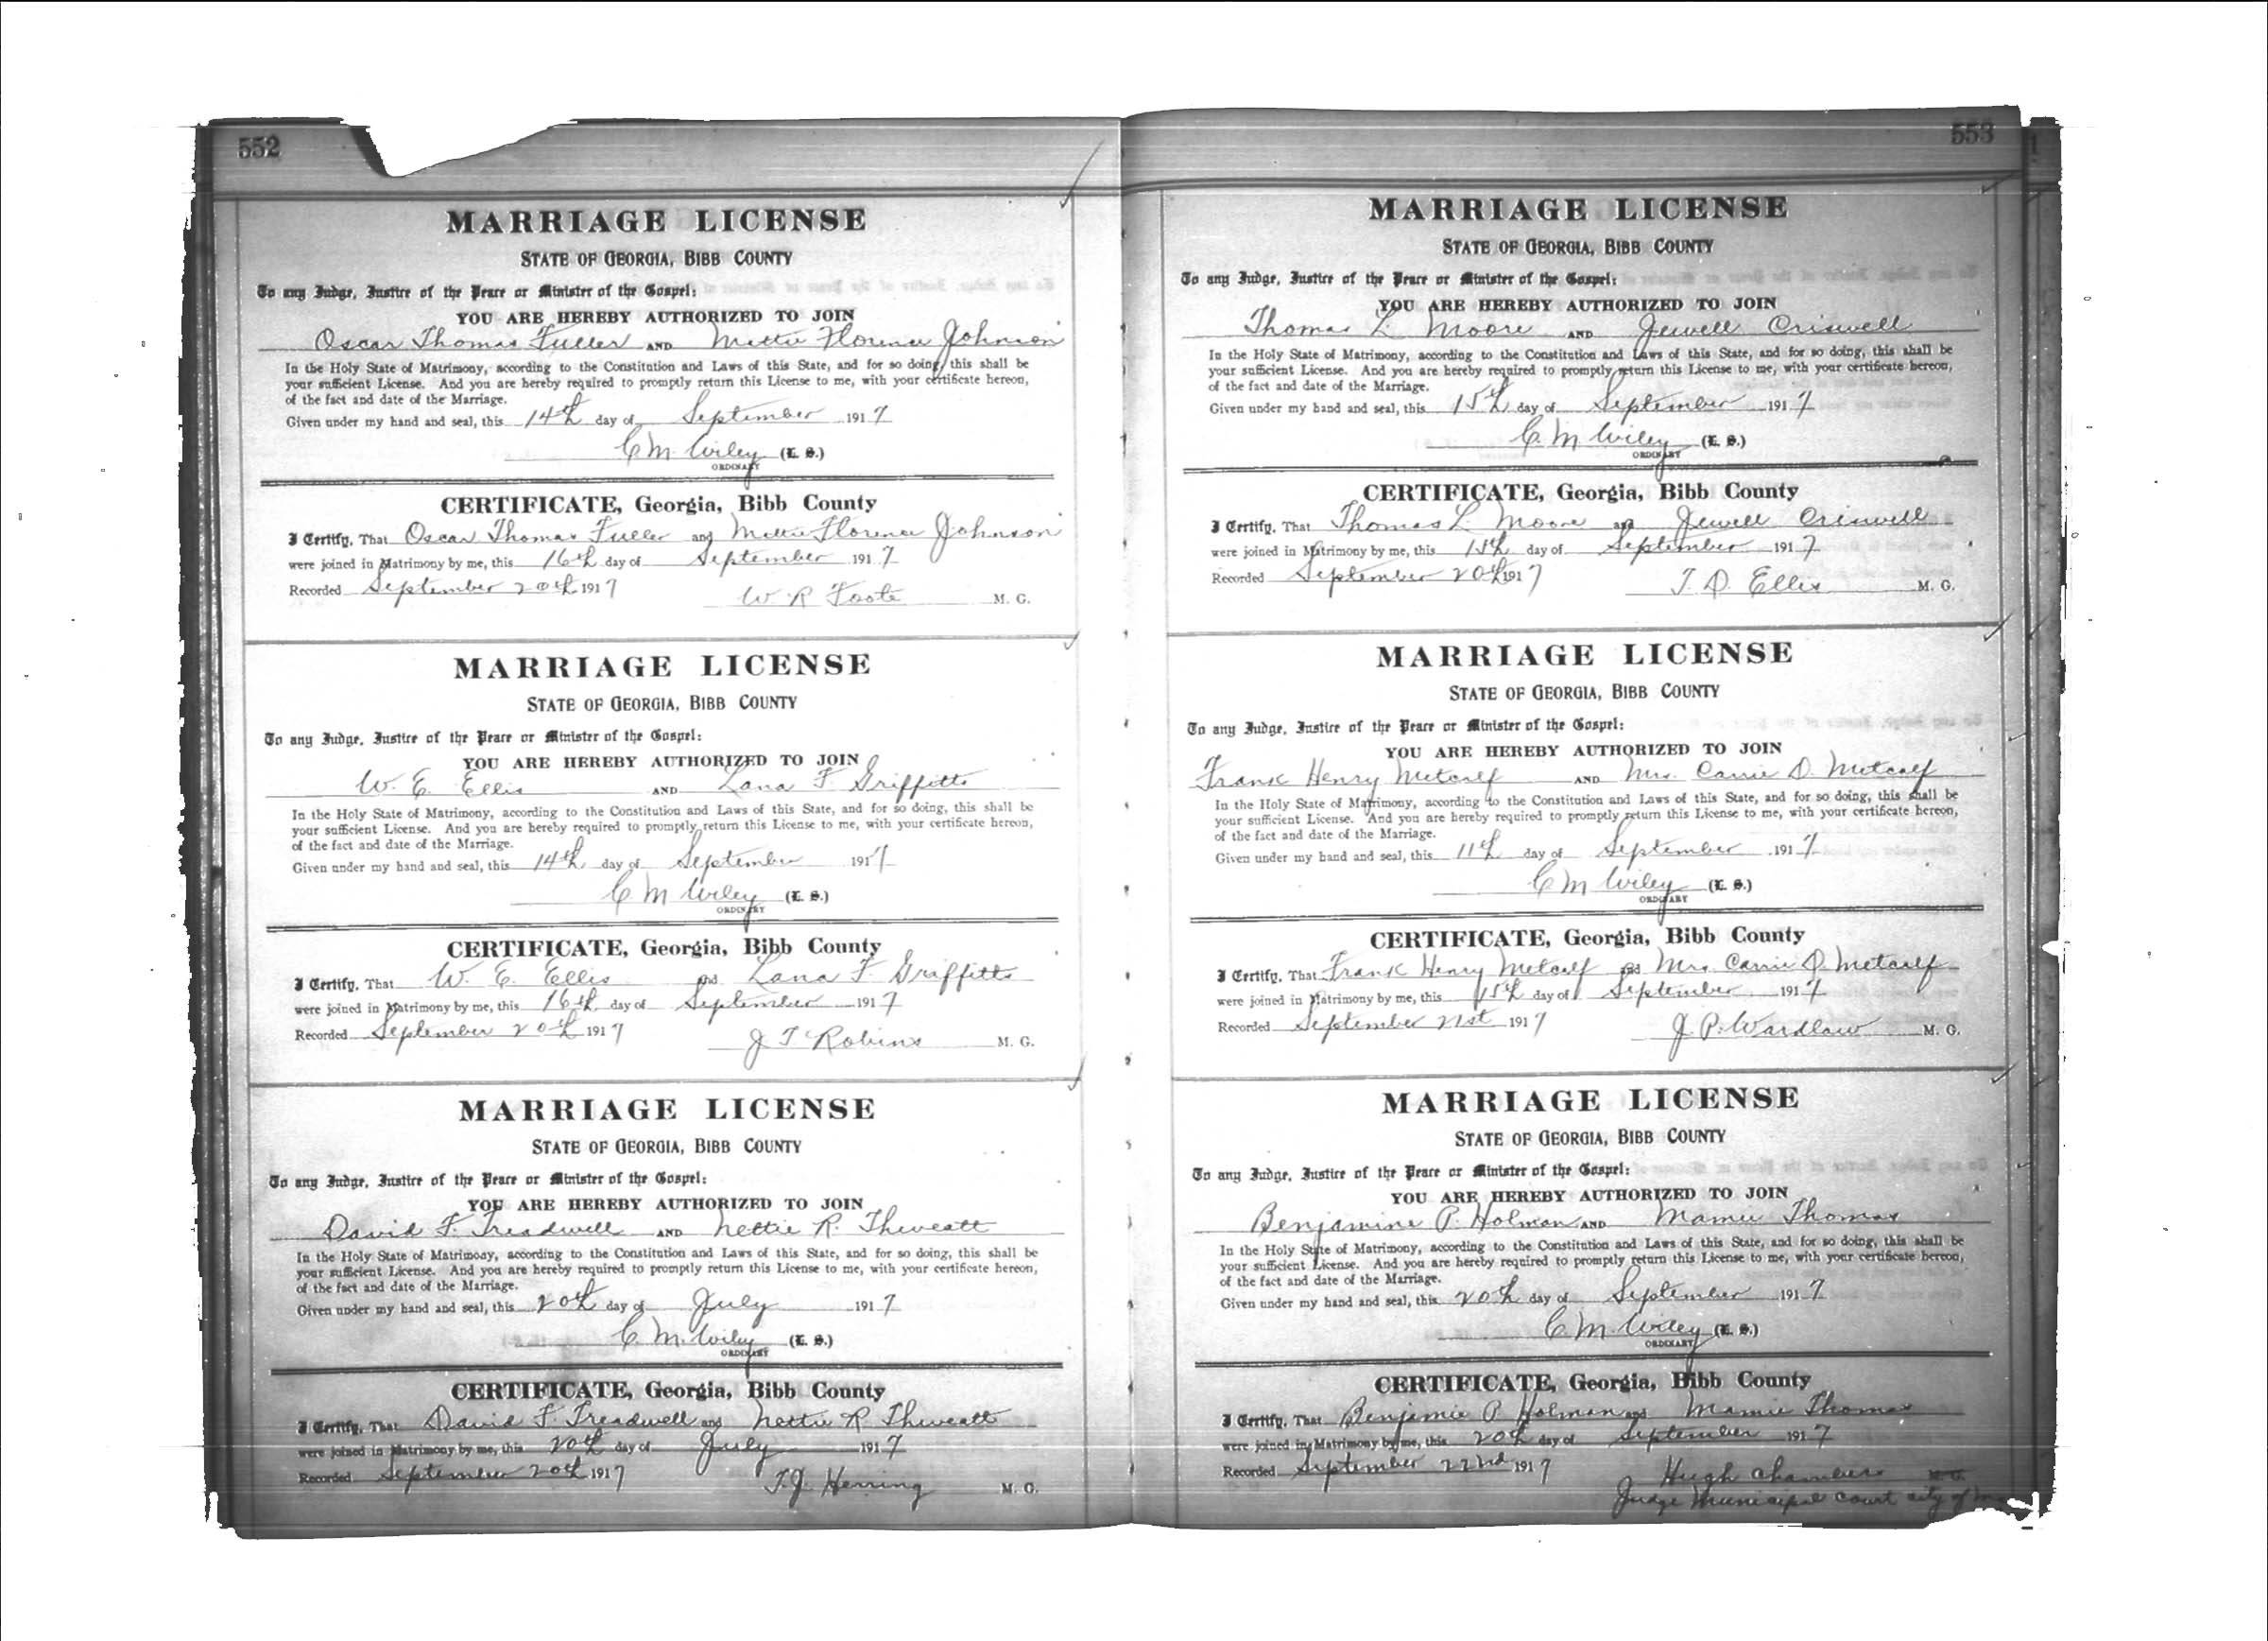 552
MARRIAGE LICENSE
STATE OF GEORGIA, BIBB COUNTY
To any Judge, Justice of the Peace or Minister of the Gospel:
YOU ARE HEREBY AUTHORIZED TO JOIN
Oscar Thomas Fuller AND Mattie Florence Johnson
In the Holy State of Matrimony, according to the Constitution and Laws of this State, and for so doing, this shall be
your sufficient License. And you are hereby required to promptly return this License to me, with your certificate hereon,
of the fact and date of the Marriage.
Given under my hand and seal, this 14th day of September 1917
C. M. Wiley (L. S.)
ORDINARY
CERTIFICATE, Georgia, Bibb County
I Certify, That Oscar Thomas Fuller and Mattie Florence Johnson
were joined in Matrimony by me, this 16th day of September 1917
Recorded September 20th 1917
W. R. Foote M. G.
MARRIAGE LICENSE
STATE OF GEORGIA, BIBB COUNTY
To any Judge, Justice of the Peace or Minister of the Gospel:
YOU ARE HEREBY AUTHORIZED TO JOIN
W. E. Ellis AND Lana F. Griffitts
In the Holy State of Matrimony, according to the Constitution and Laws of this State, and for so doing, this shall be
your sufficient License. And you are hereby required to promptly return this License to me, with your certificate hereon,
of the fact and date of the Marriage.
Given under my hand and seal, this 14th day of September 1917
C M Wiley (L. S.)
ORDINARY
CERTIFICATE, Georgia, Bibb County
I Certify, That W. E. Ellis and Lana F. Griffitts
were joined in Matrimony by me, this 16th day of September 1917
Recorded September 20th 1917
J T Robins M. G.
MARRIAGE LICENSE
STATE OF GEORGIA, BIBB COUNTY
To any Judge, Justice of the Peace or Minister of the Gospel:
YOU ARE HEREBY AUTHORIZED TO JOIN
David F. Treadwell AND Nettie R. Theweatt
In the Holy State of Matrimony, according to the Constitution and Laws of this State, and for so doing, this shall be
your sufficient License. And you are hereby required to promptly return this License to me, with your certificate hereon,
of the fact and date of the Marriage.
Given under my hand and seal, this 20th day of July 1917
C. M. Wiley (L. S.)
ORDINARY
CERTIFICATE, Georgia, Bibb County
I Certify, That David F. Treadwell and Nettie R Theweatt
were joined in Matrimony by me, this 20th day of July 1917
Recorded September 20th 1917
T. J. Herring M. G.
553
MARRIAGE LICENSE
STATE OF GEORGIA, BIBB COUNTY
To any Judge, Justice of the Peace or Minister of the Gospel:
YOU ARE HEREBY AUTHORIZED TO JOIN
Thomas L. Moore AND Jewell Criswell
In the Holy State of Matrimony, according to the Constitution and Laws of this State, and for so doing, this shall be
your sufficient License. And you are hereby required to promptly return this License to me, with your certificate hereon,
of the fact and date of the Marriage.
Given under my hand and seal, this 15th day of September 1917
C. M Wiley (L. S.)
ORDINARY
CERTIFICATE, Georgia, Bibb County
I Certify, That Thomas L. Moore and Jewell Criswell
were joined in Matrimony by me, this 15th day of September 1917
Recorded September 20th 1917
T. D. Ellis M. G.
MARRIAGE LICENSE
STATE OF GEORGIA, BIBB COUNTY
To any Judge, Justice of the Peace or Minister of the Gospel:
YOU ARE HEREBY AUTHORIZED TO JOIN
Frank Henry Metcalf AND Mrs. Carrie D. Metcalf
In the Holy State of Matrimony, according to the Constitution and Laws of this State, and for so doing, this shall be
your sufficient License. And you are hereby required to promptly return this License to me, with your certificate hereon,
of the fact and date of the Marriage.
Given under my hand and seal, this 11th day of September 1917
C M Wiley (L. S.)
ORDINARY
CERTIFICATE, Georgia, Bibb County
I Certify, That Frank Henry Metcalf and Mrs. Carrie D. Metcalf
were joined in Matrimony by me, this 15th day of September 1917
Recorded September 21st 1917
J. P. Wardlaw M. G.
MARRIAGE LICENSE
STATE OF GEORGIA, BIBB COUNTY
To any Judge, Justice of the Peace or Minister of the Gospel:
YOU ARE HEREBY AUTHORIZED TO JOIN
Benjamine P. Holman AND Mamie Thomas
In the Holy State of Matrimony, according to the Constitution and Laws of this State, and for so doing, this shall be
your sufficient License. And you are hereby required to promptly return this License to me, with your certificate hereon,
of the fact and date of the Marriage.
Given under my hand and seal, this 20th day of September 1917
C. M. Wiley (L. S.)
ORDINARY
CERTIFICATE, Georgia, Bibb County
I Certify, That Benjamie P. Holman and Mamie Thomas
were joined in Matrimony by me, this 20th day of September 1917
Recorded September 22nd 1917
Hugh Chambers M. G.
Judge Municipal Court city of